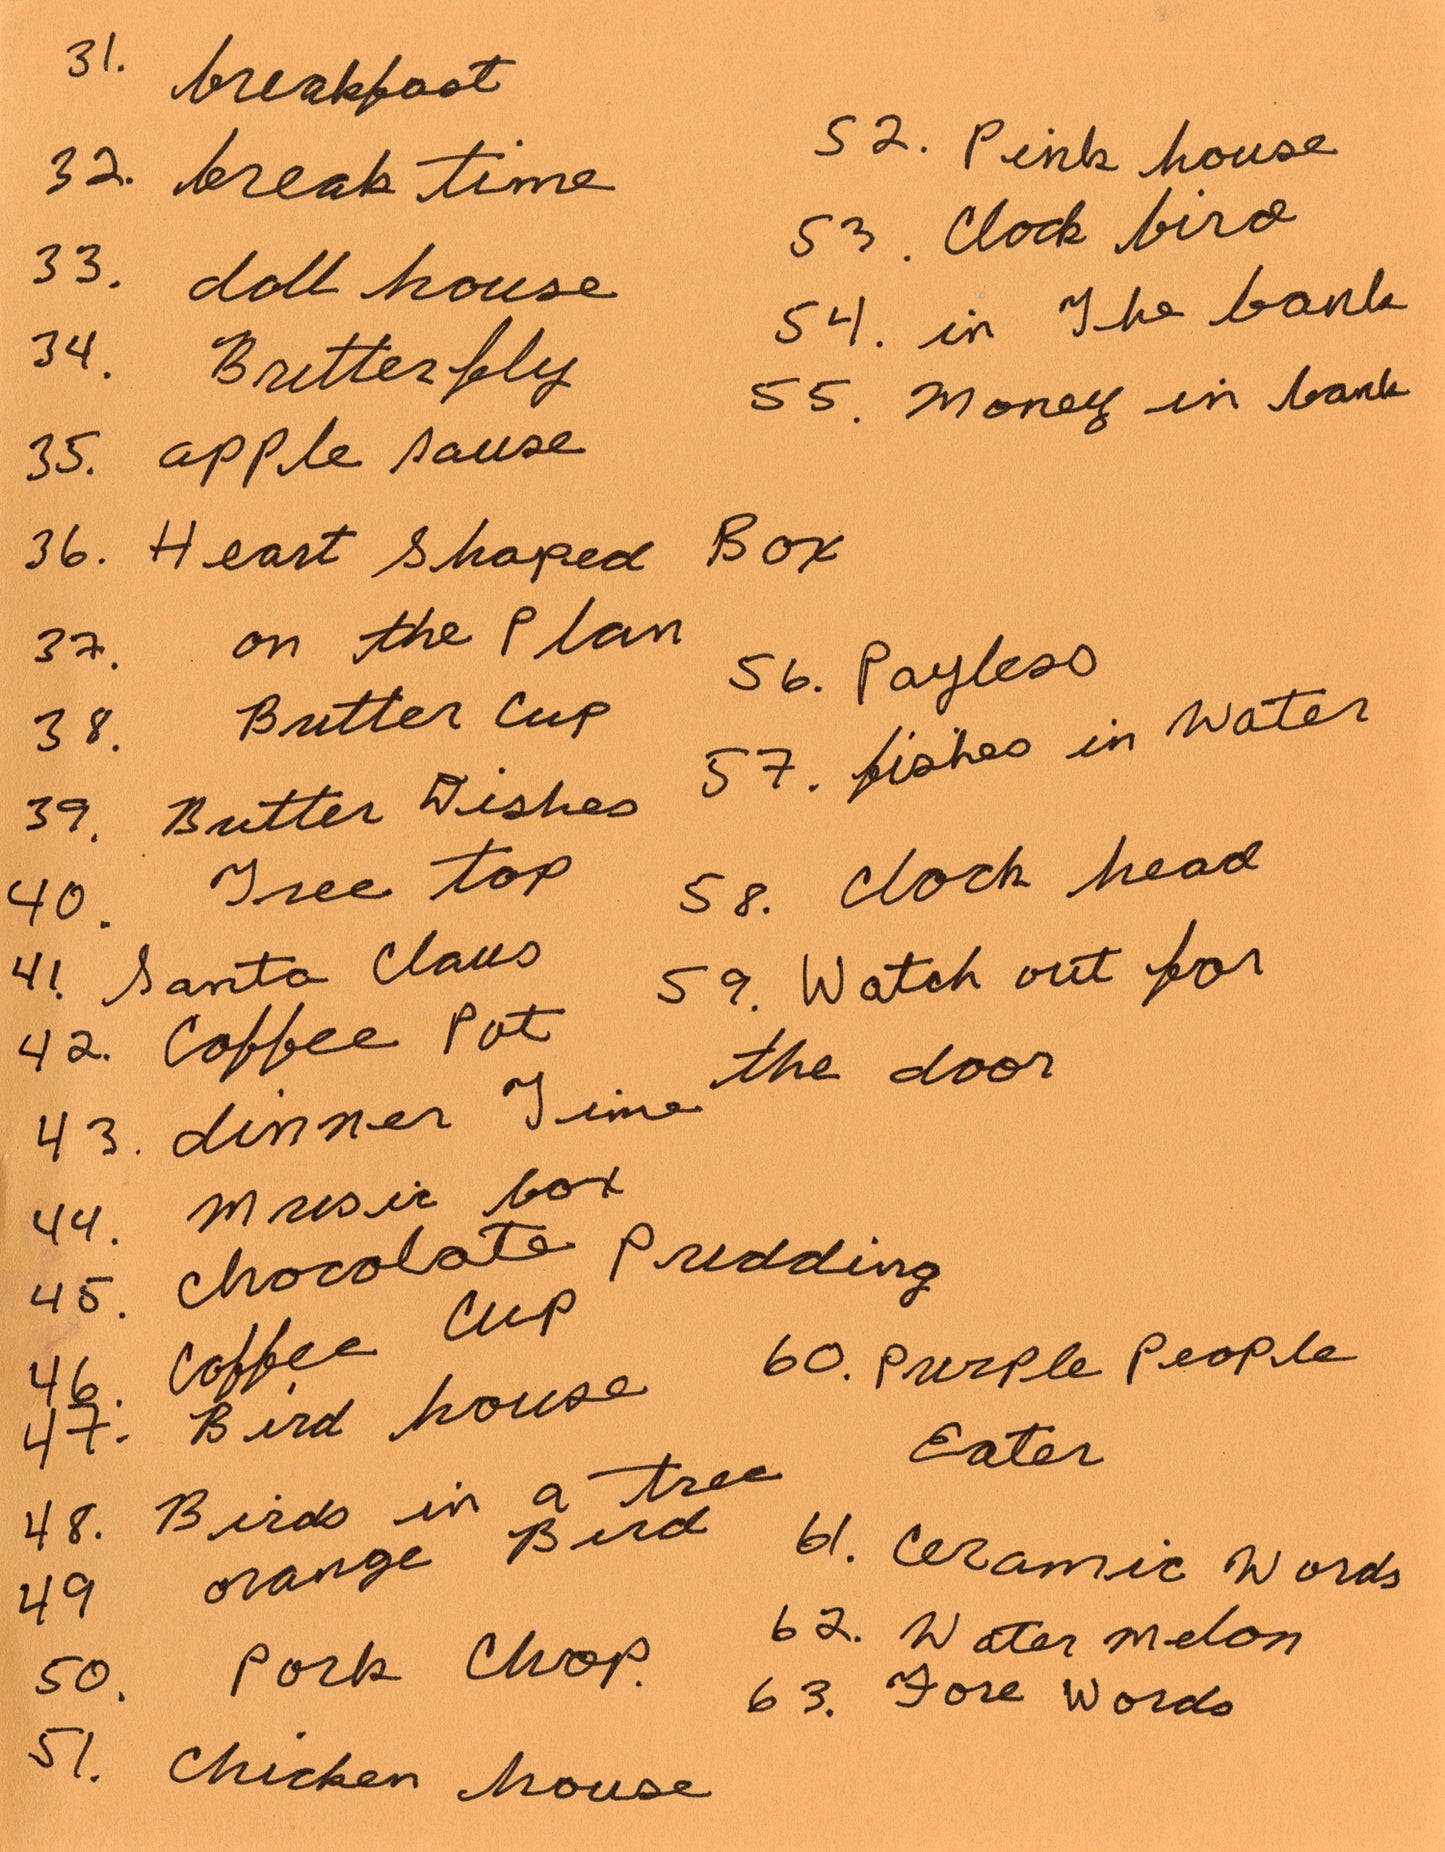 31. breakfast
32. break time
33. doll house
34. Butterfly
35. apple sause
36. Heart Shaped Box
37. on the Plan
38. Butter Cup
39. Butter Dishes
40. Tree top
41. Santa Claus
42. Coffee Pot
43. dinner Time
44. Music box
45. Chocolate Pudding
46. Coffee Cup
47. Bird house
48. Birds in a tree
49 orange Bird
50. Pork Chop.
51. Chicken house
52. Pink house
53. Clock bird
54. in The bank
55. Money in bank
56. Payless
57. fishes in Water
58. Clock head
59. Watch out for
the door
60. Purple People
Eater
61. Ceramic Words
62. Water melon
63. Fore Words